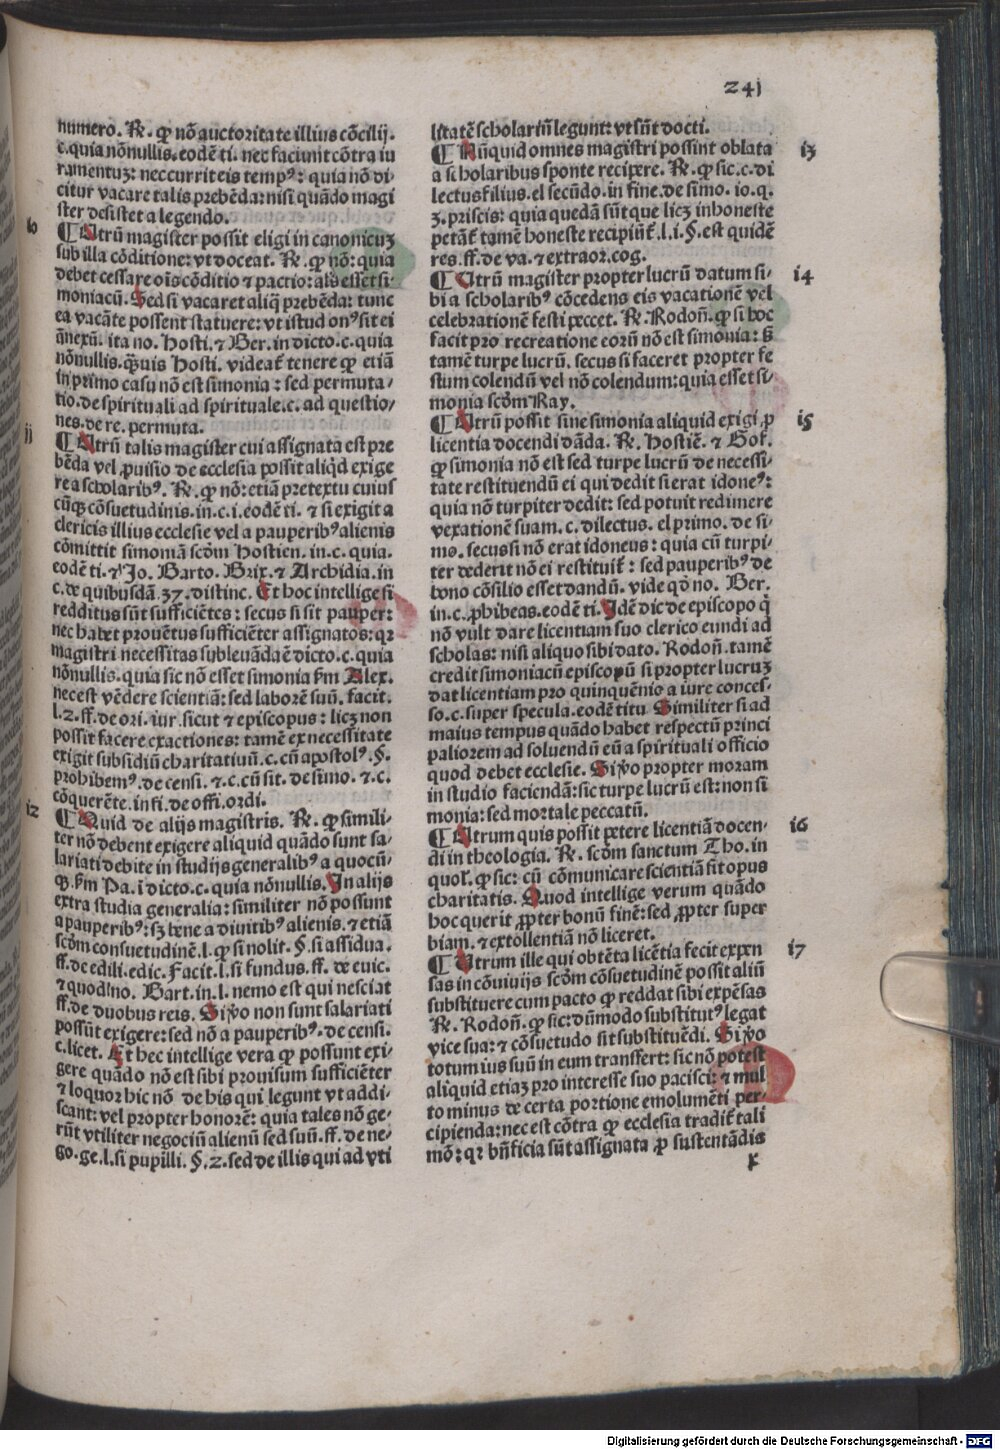 241
numero. R̃. ꝙ nõ auctoritate illius cõcilij.
c. quia nõnullis. eodẽ ti. nec faciunt cõtra iu
ramentuꝫ: nec currit eis tempꝰ: quia nõ di-
citur vacare talis prebẽda: nisi quãdo magi
ster desistet a legendo.
10
¶ Utrũ magister possit eligi in canonicuꝫ
sub illa cõditione: vt doceat. R̃. ꝙ nõ: quia
debet cessare oĩs cõditio ⁊ pactio: alꝭ esset si-
moniacũ. Sed si vacaret aliq̃ prebẽda: tunc
ea vacãte possent statuere: vt istud onꝰ sit ei
ãnexũ. ita no. Hosti. ⁊ Ber. in dicto. c. quia
nõnullis. q̃uis Hosti. videat̃ tenere ꝙ etiã
in primo casu nõ est simonia: sed permuta-
tio. de spirituali ad spirituale. c. ad questio-
nes. de re. permuta.
11
¶ Utrũ talis magister cui assignata est pre
bẽda vel ꝓuisio de ecclesia possit aliq̃d exige
re a scholaribꝰ. R̃. ꝙ nõ: etiã pretextu cuius
cũqꝫ cõsuetudinis. in. c. i. eodẽ ti. ⁊ si exigit a
clericis illius ecclesie vel a pauperibꝰ alienis
cõmittit simoniã scðm Hostien. in. c. quia.
eodẽ ti. ⁊ Jo. Barto. Brix. ⁊ Archidia. in
c. de quibusdã. 37. distinc. Et hoc intellige si
redditus sũt sufficiẽtes: secus si sit pauper:
nec habet prouẽtus sufficiẽter assignatos: qꝛ
magistri necessitas subleuãda ẽ dicto. c. quia
nõnullis. quia sic nõ esset simonia ẜm Alex.
nec est vẽdere scientiã: sed laborẽ suũ. facit.
l. 2. ff. de ori. iur. sicut ⁊ episcopus: licꝫ non
possit facere exactiones: tamẽ ex necessitate
exigit subsidiũ charitatiuũ. c. cũ apostolꝰ. §.
prohibemꝰ. de censi. ⁊. c. cũ sit. de simo. ⁊. c.
cõquerẽte. in fi. de offi. ordi.
12
¶ Quid de alijs magistris. R̃. ꝙ simili-
ter nõ debent exigere aliquid quãdo sunt sa-
lariati debite in studijs generalibꝰ a quocũ-
qꝫ. ẜm Pa. ĩ dicto. c. quia nõnullis. In alijs
extra studia generalia: similiter nõ possunt
a pauperibꝰ: sꝫ bene a diuitibꝰ alienis. ⁊ etiã
scðm consuetudinẽ. l. ꝙ si nolit. §. si assidua.
ff. de edili. edic. Facit. l. si fundus. ff. de euic.
⁊ quod no. Bart. in. l. nemo est qui nesciat
ff. de duobus reis. Si ꝟo non sunt salariati
possũt exigere: sed nõ a pauperibꝰ. de censi.
c. licet. Et hec intellige vera ꝙ possunt exi-
gere quãdo nõ est sibi prouisum sufficiẽter
⁊ loquor hic nõ de his qui legunt vt addi-
scant: vel propter honorẽ: quia tales nõ ge-
rũt vtiliter negociũ alienũ sed suũ. ff. de ne-
go. ge. l. si pupilli. §. 2. sed de illis qui ad vti
litatẽ scholariũ legunt: vt sũt docti.
13
¶ Nũquid omnes magistri possint oblata
a scholaribus sponte recipere. R̃. ꝙ sic. c. di
lectus filius. el secũdo. in fine. de simo. 10. q.
3. priscis: quia quedã sũt que licꝫ inhoneste
petãt̃ tamẽ honeste recipiũt̃. l. i. §. est quidẽ
res. ff. de va. ⁊ extraor. cog.
14
¶ Utrũ magister propter lucrũ datum si-
bi a scholaribꝰ cõcedens eis vacationẽ vel
celebrationẽ festi peccet. R̃. Rodoñ. ꝙ si hoc
facit pro recreatione eorũ nõ est simonia: ẜ
tamẽ turpe lucrũ. secus si faceret propter fe
stum colendũ vel nõ colendum: quia esset si-
monia scðm Ray.
15
¶ Utrũ possit sine simonia aliquid exigi ꝓ
licentia docendi dãda. R̃. Hostiẽ. ⁊ Gof.
ꝙ simonia nõ est sed turpe lucrũ de necessi-
tate restituendũ ei qui dedit si erat idoneꝰ:
quia nõ turpiter dedit: sed potuit redimere
vexationẽ suam. c. dilectus. el primo. de si-
mo. secus si nõ erat idoneus: quia cũ turpi-
ter dederit nõ ei restituit̃: sed pauperibꝰ de
bono cõsilio esset dandũ. vide qð no. Ber.
in. c. ꝓhibeas. eodẽ ti. Idẽ dic de episcopo q̃
nõ vult dare licentiam suo clerico eundi ad
scholas: nisi aliquo sibi dato. Rodoñ. tamẽ
credit simoniacũ episcopũ si propter lucruꝫ
dat licentiam pro quinquẽnio a iure conces-
so. c. super specula. eodẽ titu. Similiter si ad
maius tempus quãdo habet respectũ princi
paliorem ad soluendũ eũ a spirituali officio
quod debet ecclesie. Si ꝟo propter moram
in studio faciendã: sic turpe lucrũ est: non si
monia: sed mortale peccatũ.
16
¶ Utrum quis possit petere licentiã docen-
di in theologia. R̃. scðm sanctum Tho. in
quol. ꝙ sic: cũ cõmunicare scientiã sit opus
charitatis. Quod intellige verum quãdo
hoc querit ꝓpter bonũ finẽ: sed ꝓpter super
biam. ⁊ extollentiã nõ liceret.
17
¶ Utrum ille qui obtẽta licẽtia fecit expen
sas in cõuiuijs scðm cõsuetudinẽ possit aliũ
substituere cum pacto ꝙ reddat sibi expẽsas
R̃. Rodoñ. ꝙ sic: dũmodo substitutꝰ legat
vice sua: ⁊ cõsuetudo sit substituẽdi. Si ꝟo
totum ius suũ in eum transfert: sic nõ potest
aliquid etiaꝫ pro interesse suo pacisci: ⁊ mul
to minus de certa portione emolumẽti per-
cipienda: nec est cõtra ꝙ ecclesia tradit̃ tali
mõ: qꝛ bñficia sũt assignata ꝓ sustentãdis
x
Digitalisierung gefördert durch die Deutsche Forschungsgemeinschaft - DFG